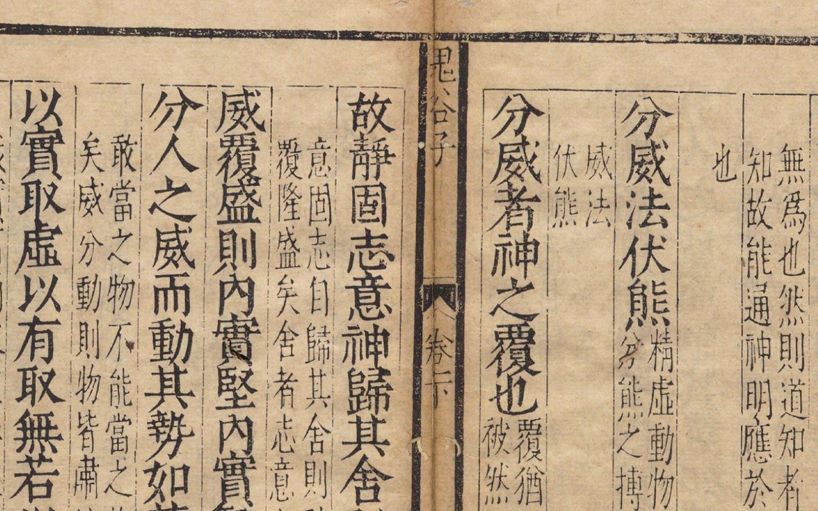 無為也然則道知者
知故能通神明應於
也
分威法伏熊
精虛動物
分熊之搏
威法
伏熊
分威者神之覆也
覆猶
被然
鬼谷子
卷下
故靜固志意神歸其舍
意固志自歸其舍則
覆隆盛矣舍者志意
威覆盛則內實堅內實
分人之威而動其勢如
敢當之物不能當之
矣威分動則物皆肅
以實取虛以有取無若